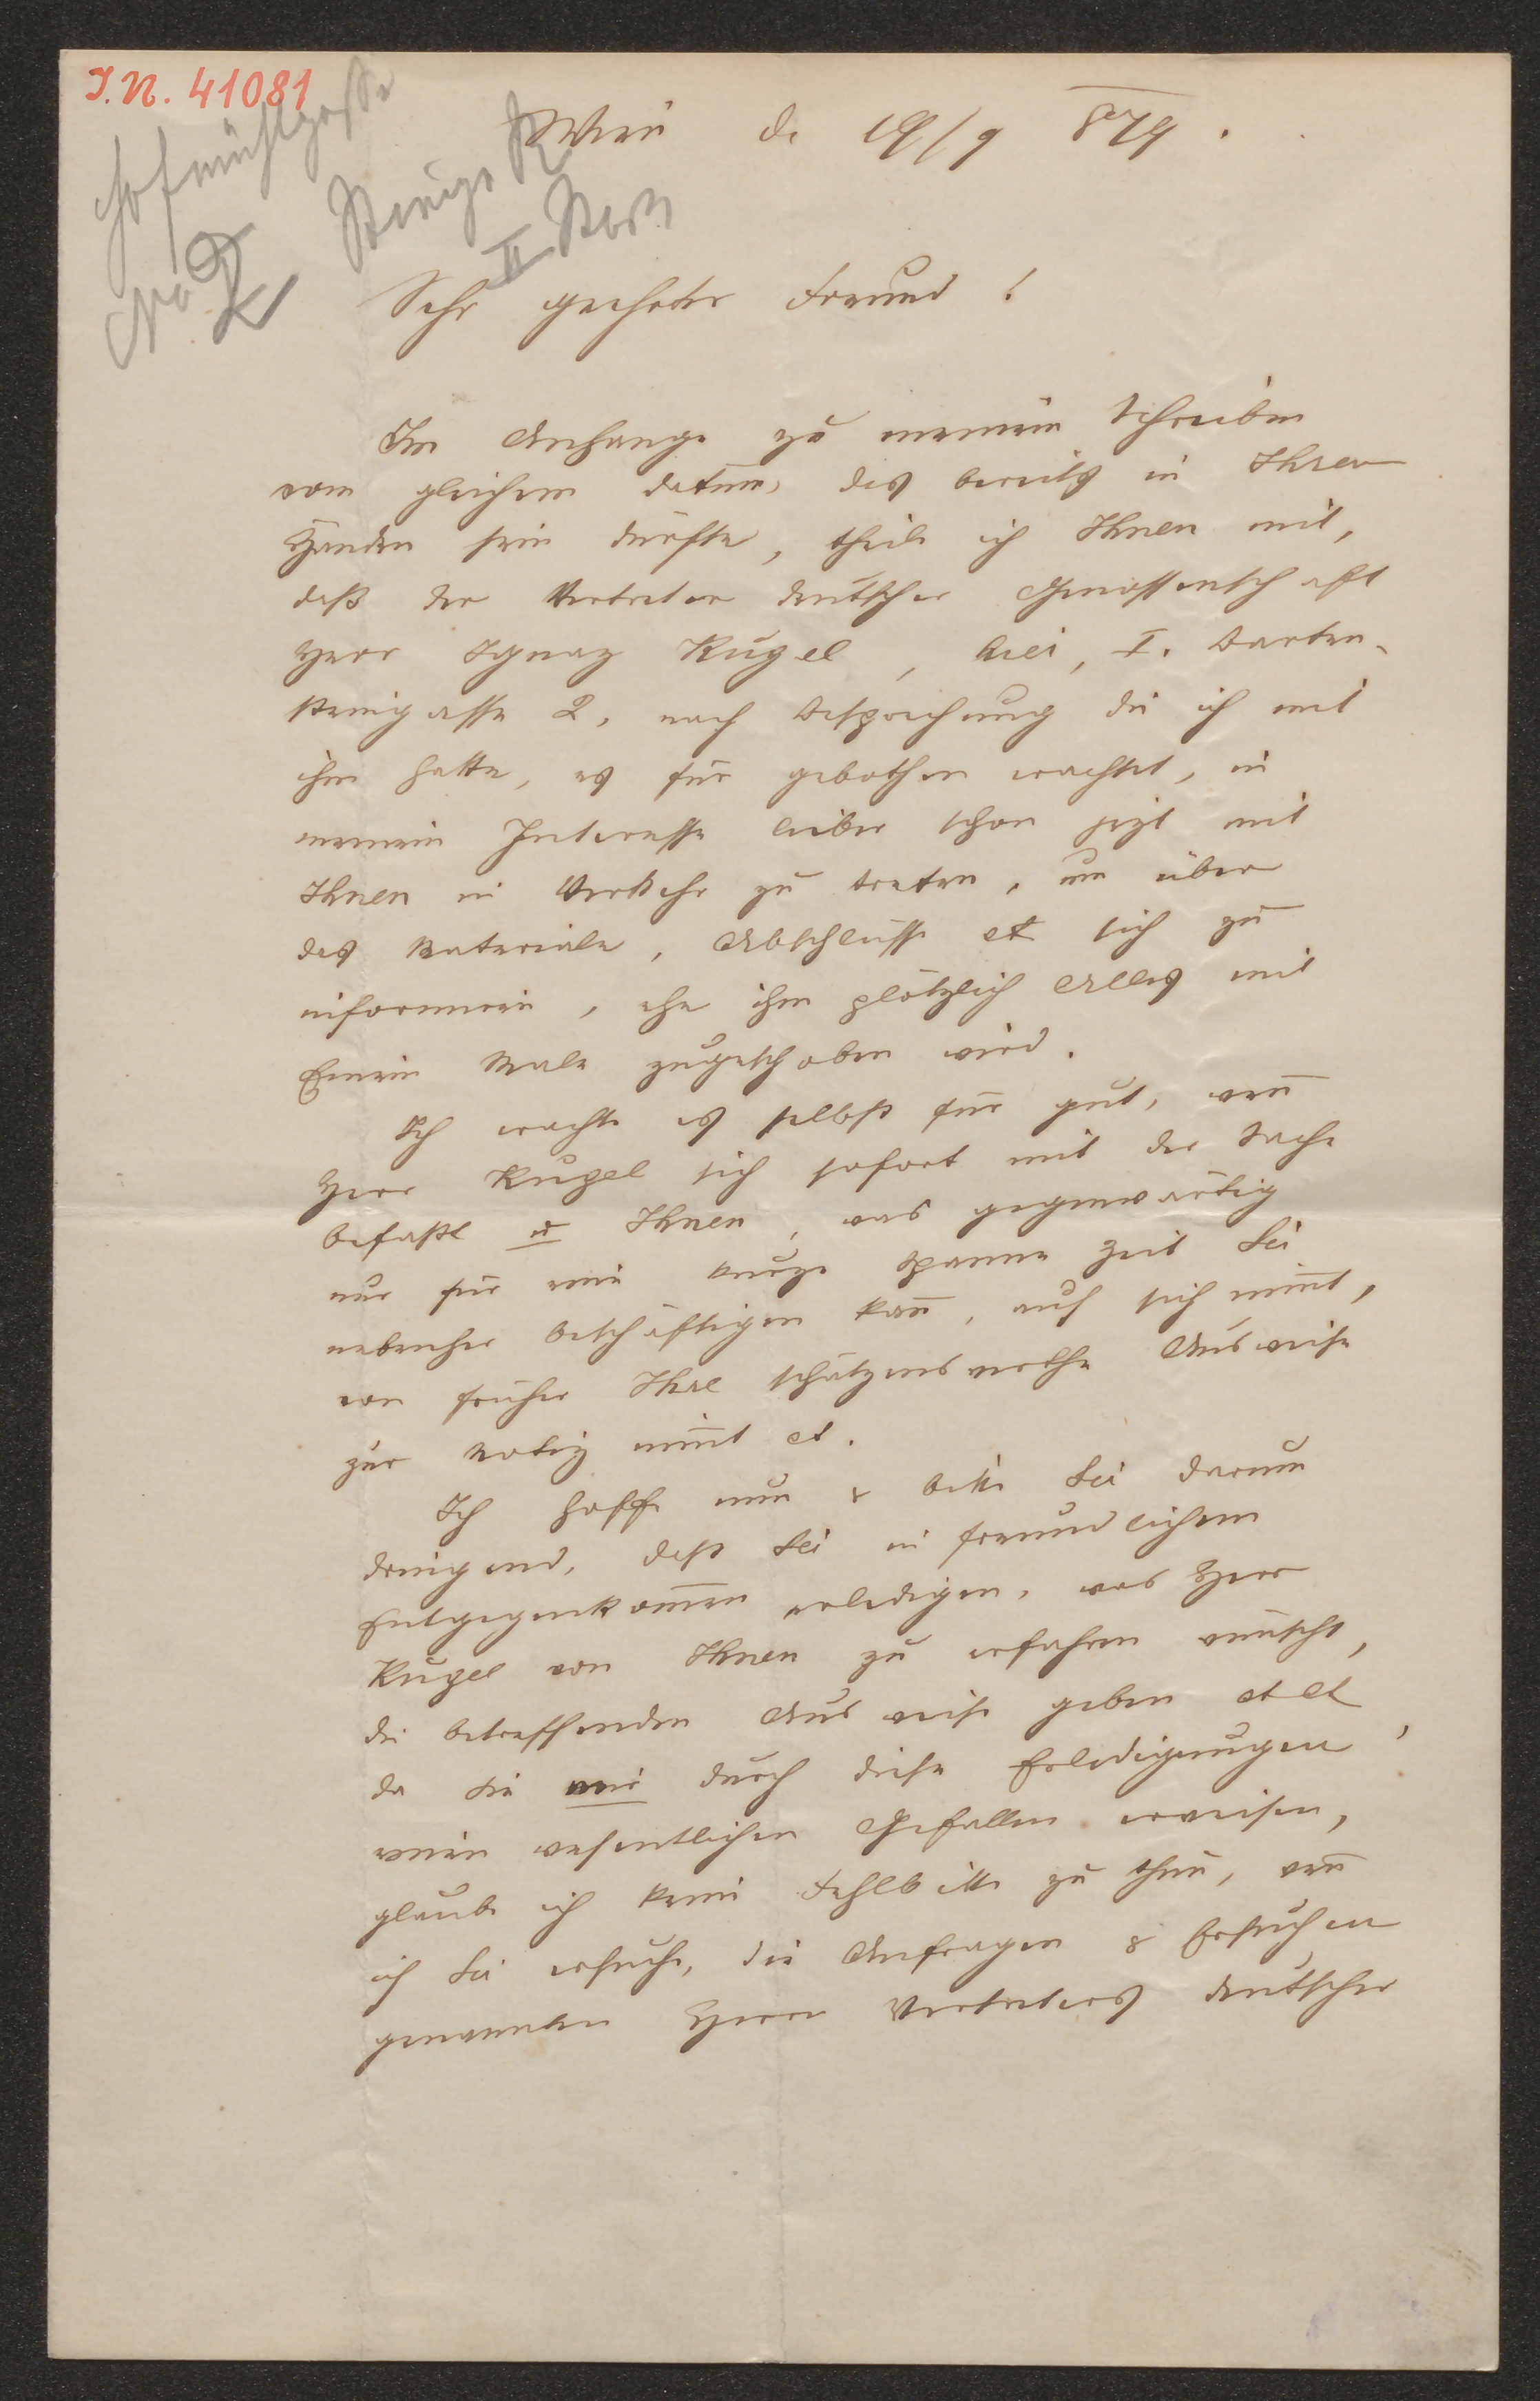 I.N. 41081
Hofmühlgasse
No 2 Stiege
II Stock
Wien de 19/9 879.
Sehr geehrter Freund!
Im Anhange zu meinem Schreiben
vom gleichem Datum, das bereits in Ihren
Händen sein dürfte, theile ich Ihnen mit,
daß der Vertreter deutscher Genossenschaft
Herr Ignaz Kugel, hier, I. Barten-
steingasse 2, nach Besprechung die ich mit
ihm hatte, es für gebothen erachtet, in
meinem Interesse lieber schon jezt mit
Ihnen in Verkehr zu treten, um über
das Materiale, Abschlüsse et sich zu
informiren, ehe ihm plötzlich Alles mit
Einem Male zugeschoben wird.
Ich erachte es selbst für gut, wen̄
Herr Kugel sich sofort mit der Sache
befaßt u Ihnen, was gegenwärtig
nur für eine kurze Spanne Zeit Sie
nebenher beschäftigen kan̄, auf sich nim̄t,
von früher Ihre schätzenswerthe Ausweise
zur Notiz nim̄t et.
Ich hoffe nun & bitte Sie darum
dringend, daß Sie in freundlichem
Entgegenkom̄en erledigen, was Herr
Kugel von Ihnen zu erfahren wünscht,
die betreffenden Ausweise geben et et
da Sie mir durch diese Erledigungen,
einen wesentlichen Gefallen erweisen,
glaube ich keine Fehlbitte zu thun, wen̄
ich Sie ersuche, die Anfragen & Ersuchen
genannten Herrn Vertreters deutscher